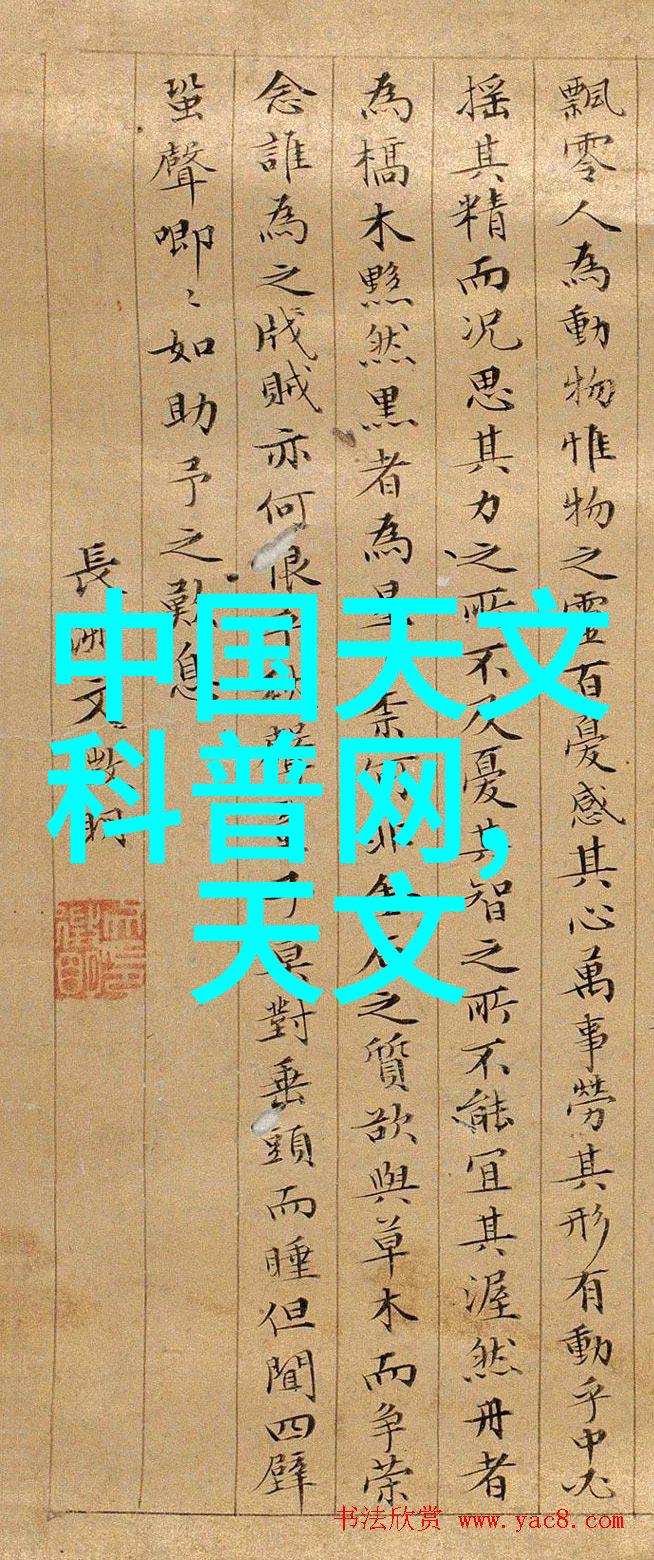 飄零人為動物惟物之靈百憂感其心萬事勞其形有動乎中必
搖其精而況思其力之所不及憂其智之所不能宜其渥然丹者
為槁木黟然黑者為星奈何非金石之質欲與草木而争荣
念誰為之戕賊亦何恨乎聲子莫對垂頭而睡但聞四壁
蛩聲唧〻如助予之歎息
長洲文徵明
中国天文
科普网,
天文
书法欣赏 www.yac8.com